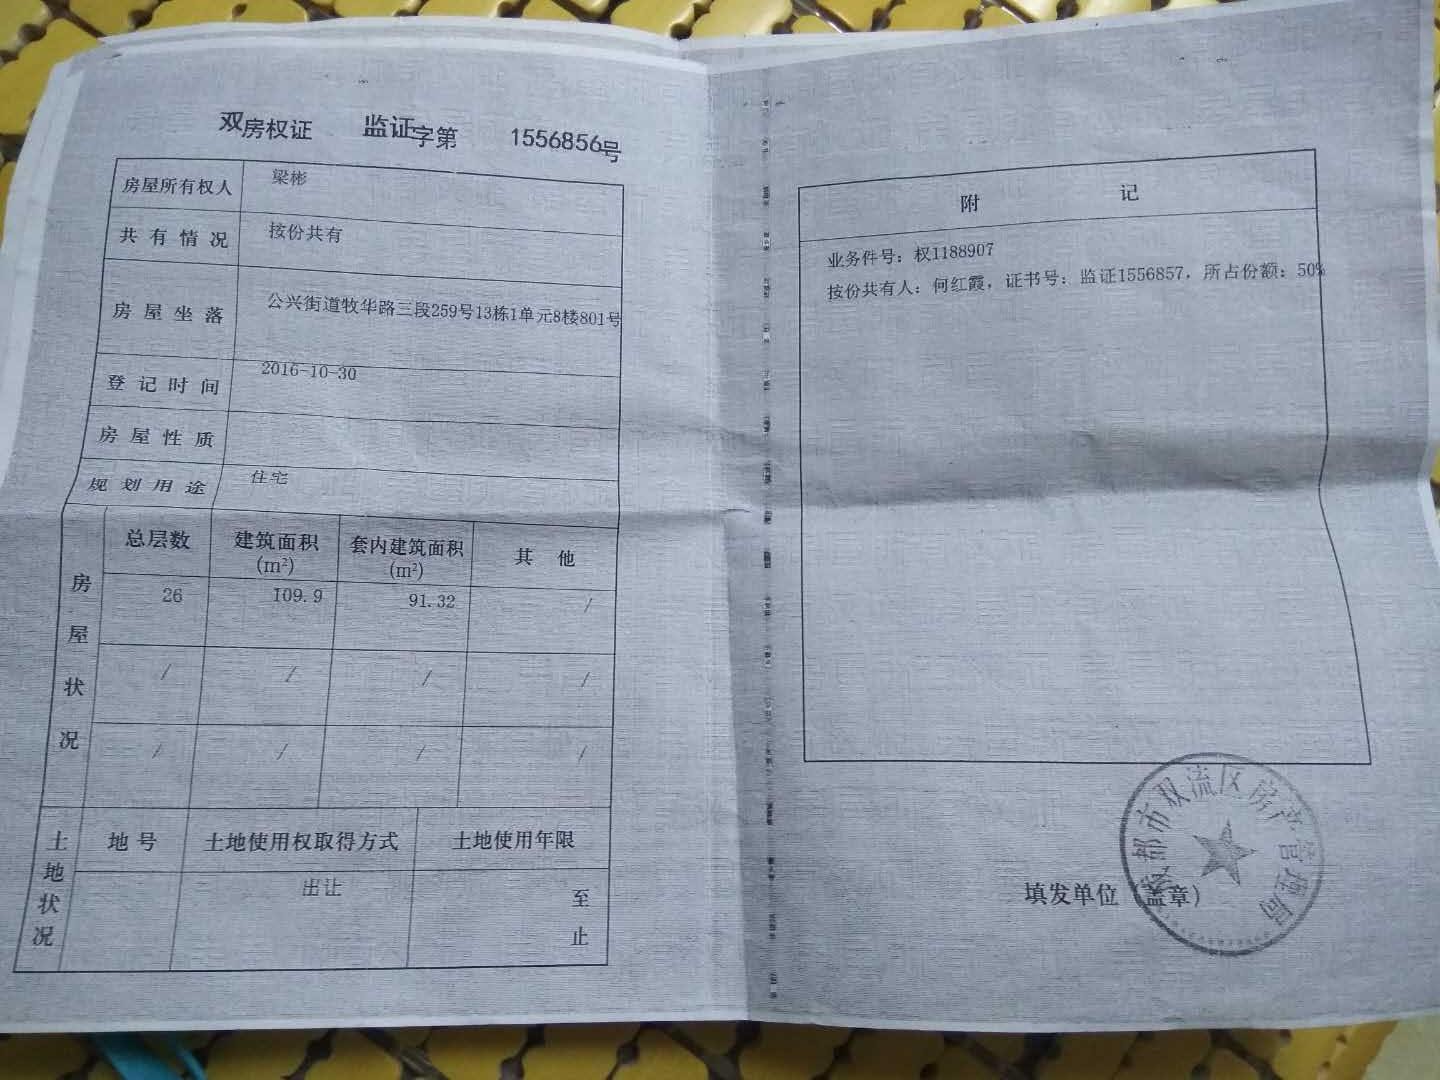 双房权证 监证字第 1556856号
房屋所有权人 梁彬
共有情况 按份共有
房屋坐落 公兴街道牧华路三段259号13栋1单元8楼801号
登记时间 2016-10-30
房屋性质
规划用途 住宅
房屋状况
总层数 建筑面积(m²) 套内建筑面积(m²) 其他
26 109.9 91.32 /
/ / / /
/ / / /
土地状况
地号 土地使用权取得方式 土地使用年限
出让 至
止
附 记
业务件号：权1188907
按份共有人：何红霞，证书号：监证1556857，所占份额：50%
填发单位（盖章）
成都市双流区房产管理局